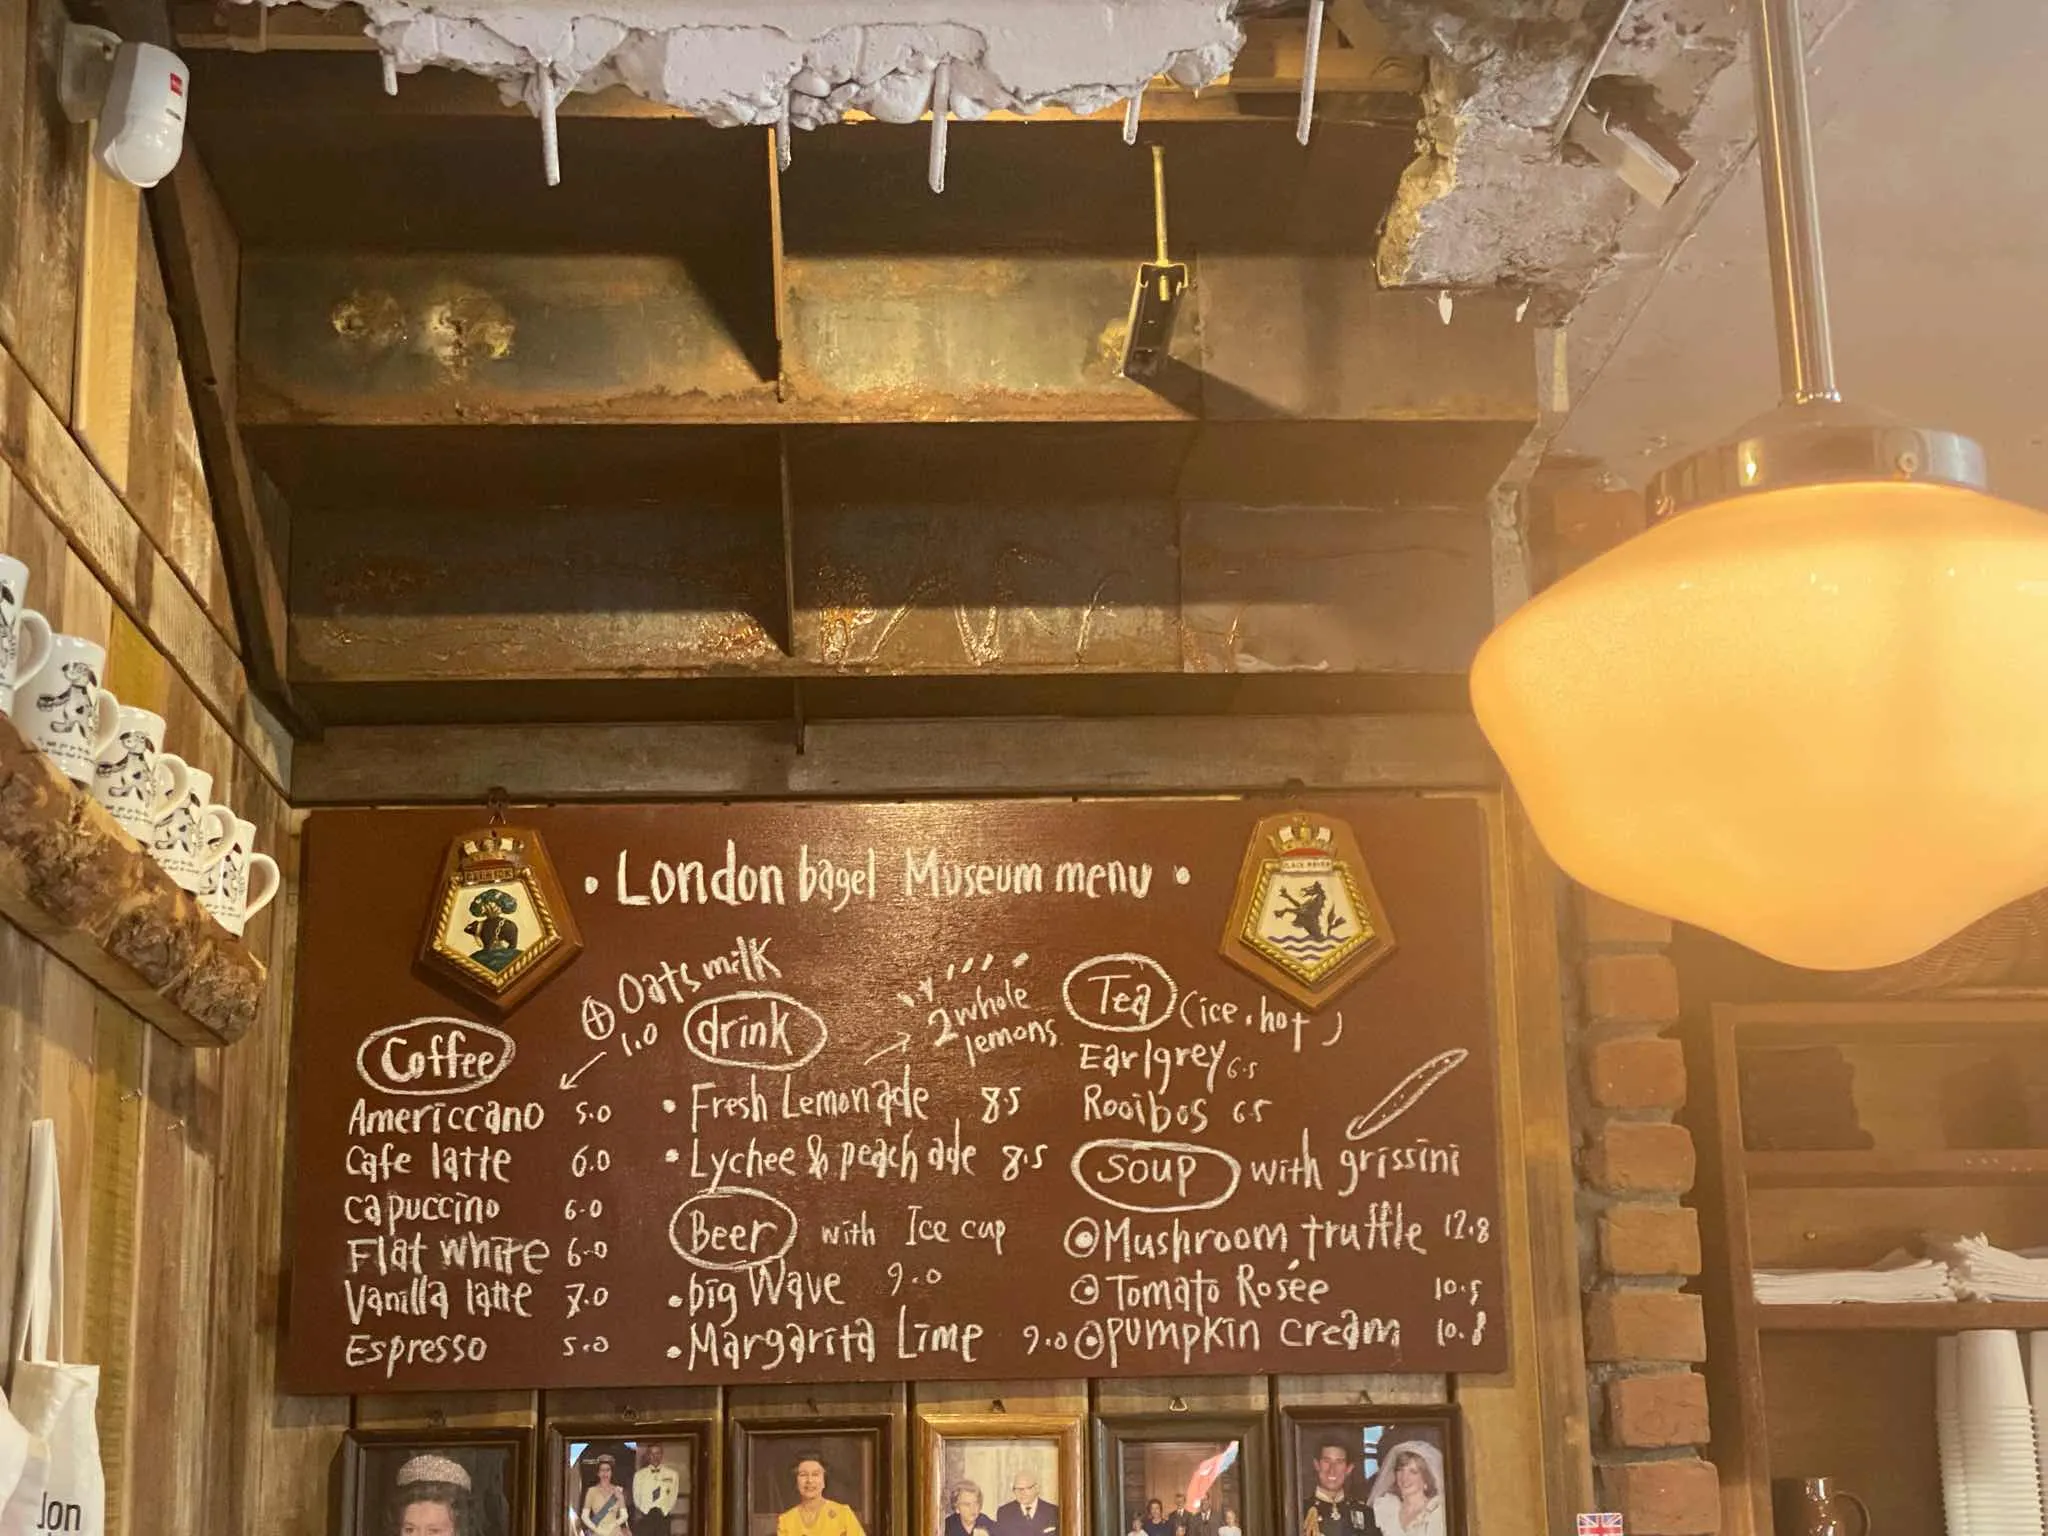 • London bagel Museum menu •
BLACK ROVER
⊕ Oats milk
1.0
Coffee
Americcano 5.0
Cafe latte 6.0
capuccino 6.0
Flat white 6.0
Vanilla latte 7.0
Espresso 5.0
drink
2 whole
lemons
• Fresh Lemonade 8.5
• Lychee & peach ade 8.5
Beer with Ice cup
• big Wave 9.0
• Margarita Lime 9.0
Tea (ice, hot)
Earlgrey 6.5
Rooibos 6.5
Soup with grissini
⊙ Mushroom truffle 12.8
⊙ Tomato Rosée 10.5
⊙ pumpkin cream 10.8
lon